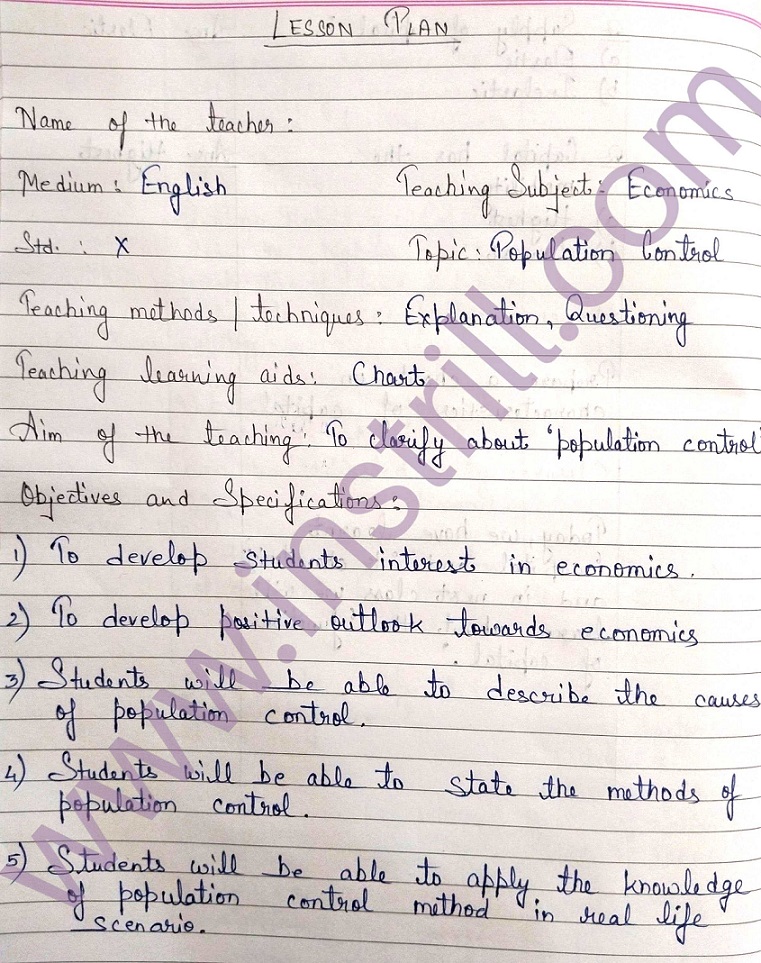 LESSON PLAN
Name of the teacher :
Medium : English Teaching Subject : Economics
Std. : X Topic : Population Control
Teaching methods / techniques : Explanation, Questioning
Teaching learning aids : Chart
Aim of the teaching : To clarify about 'population control'
Objectives and Specifications :
1) To develop students interest in economics.
2) To develop positive outlook towards economics
3) Students will be able to describe the causes
of population control.
4) Students will be able to state the methods of
population control.
5) Students will be able to apply the knowledge
of population control method in real life
scenario.
www.instrill.com